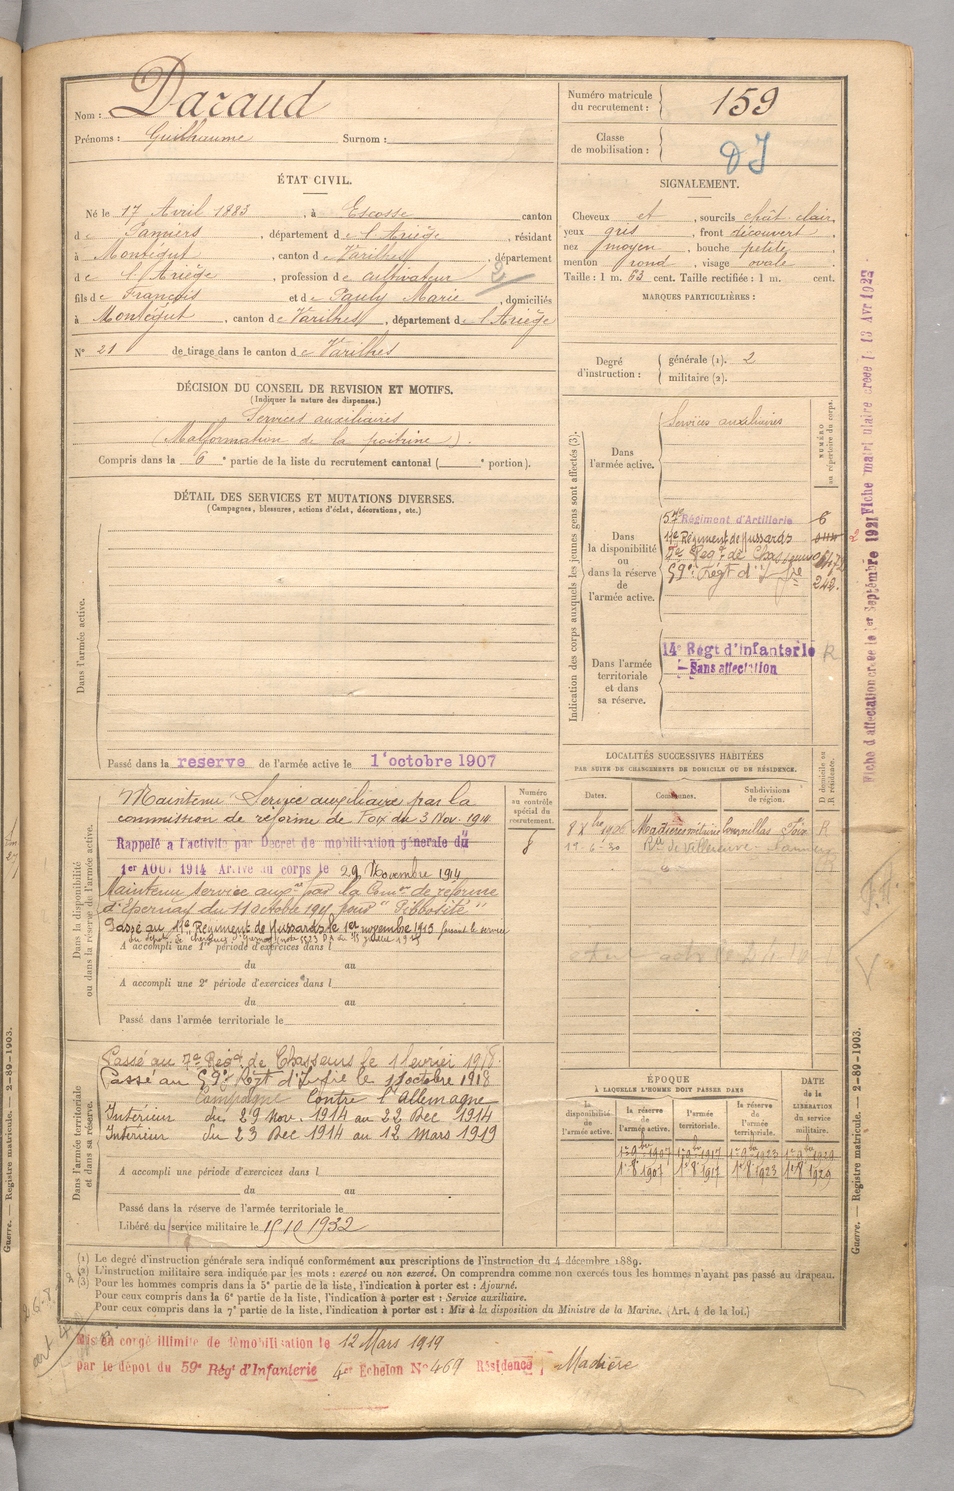 Nom : Dazaud
Prénoms : Guilhaume Surnom :
Numéro matricule du recrutement : 159
Classe de mobilisation :
ÉTAT CIVIL.
Né le 17 Avril 1883, à Escosse canton
de Pamiers, département de l'Ariège, résidant
à Montégut, canton de Varilhes, département
de l'Ariège, profession de cultivateur
fils de François et de Pauly Marie, domiciliés
à Montégut, canton de Varilhes, département de l'Ariège
N° 21 de tirage dans le canton de Varilhes
SIGNALEMENT.
Cheveux et, sourcils chât. clair
yeux gris, front découvert,
nez moyen, bouche petite,
menton rond, visage ovale
Taille : 1 m. 63 cent. Taille rectifiée : 1 m. cent.
MARQUES PARTICULIÈRES :
Degré d'instruction : générale (1). 2
militaire (2).
DÉCISION DU CONSEIL DE REVISION ET MOTIFS.
(Indiquer la nature des dispenses.)
Services auxiliaires
(Malformation de la poitrine).
Compris dans la 6e partie de la liste du recrutement cantonal ( e portion).
DÉTAIL DES SERVICES ET MUTATIONS DIVERSES.
(Campagnes, blessures, actions d'éclat, décorations, etc.)
Dans l'armée active.
Passé dans la reserve de l'armée active le 1er octobre 1907
Indication des corps auxquels les jeunes gens sont affectés (3).
NUMÉRO au répertoire du corps.
Dans l'armée active.
Services auxiliaires
Dans la disponibilité ou dans la réserve de l'armée active.
57e Régiment d'Artillerie 6
11e Régiment de Hussards
7e Reg. de Chasseurs
59e Régt d'Infie 242.
Dans l'armée territoriale et dans sa réserve.
14e Régt d'Infanterie R
Sans affectation
Fiche d'affectation créée le 1er Septembre 1921 Fiche matriculaire créée le 13 Avr 1922
LOCALITÉS SUCCESSIVES HABITÉES
PAR SUITE DE CHANGEMENTS DE DOMICILE OU DE RÉSIDENCE.
Dates. Communes. Subdivisions de région. D domicile ou R résidence.
R
Dans la disponibilité ou dans la réserve de l'armée active.
Numéro au contrôle spécial du recrutement.
8
Maintenu Service auxiliaire par la
commission de réforme de Foix du 3 Nov. 1914
Rappelé a l'activité par Decret de mobilisation générale du
1er AOUT 1914 Arrivé au corps le 29 Novembre 1914
Maintenu service aux. par la Com. de réforme
d'Epernay du 11 octobre 191 pour "Gibbosité"
Passé au 11e Regiment de Hussards le 1er novembre 1915
A accompli une 1re période d'exercices dans l
du au
A accompli une 2e période d'exercices dans l
du au
Passé dans l'armée territoriale le
Dans l'armée territoriale et dans sa réserve.
Passé au 7e Régt de Chasseurs le 1 fevrier 1918
Passé au 59e Rgt d'Infie le 1 octobre 1918
Campagne Contre l'Allemagne
Intérieur du 29 Nov. 1914 au 22 Dec 1914
Intérieur du 23 Dec 1914 au 12 Mars 1919
A accompli une période d'exercices dans l
du au
Passé dans la réserve de l'armée territoriale le
Libéré du service militaire le 15 10 1932
ÉPOQUE
À LAQUELLE L'HOMME DOIT PASSER DANS
DATE de la LIBÉRATION du service militaire.
la disponibilité de l'armée active. la réserve de l'armée active. l'armée territoriale. la réserve de l'armée territoriale.
1er 9bre 1907 1er 9b 1917 1er 9b 1923 1er 9b 1929
1er 8b 1907 1er 8b 1917 1er 8b 1923 1er 8b 1929
(1) Le degré d'instruction générale sera indiqué conformément aux prescriptions de l'instruction du 4 décembre 1889.
(2) L'instruction militaire sera indiquée par les mots : exercé ou non exercé. On comprendra comme non exercés tous les hommes n'ayant pas passé au drapeau.
(3) Pour les hommes compris dans la 5e partie de la liste, l'indication à porter est : Ajourné.
Pour ceux compris dans la 6e partie de la liste, l'indication à porter est : Service auxiliaire.
Pour ceux compris dans la 7e partie de la liste, l'indication à porter est : Mis à la disposition du Ministre de la Marine. (Art. 4 de la loi.)
Mis en congé illimité de démobilisation le 12 Mars 1919
par le dépôt du 59e Régt d'Infanterie 4er Echelon N° 469 Résidence Madière
Guerre. — Registre matricule. — 2-89-1903.
Guerre. — Registre matricule. — 2-89-1903.